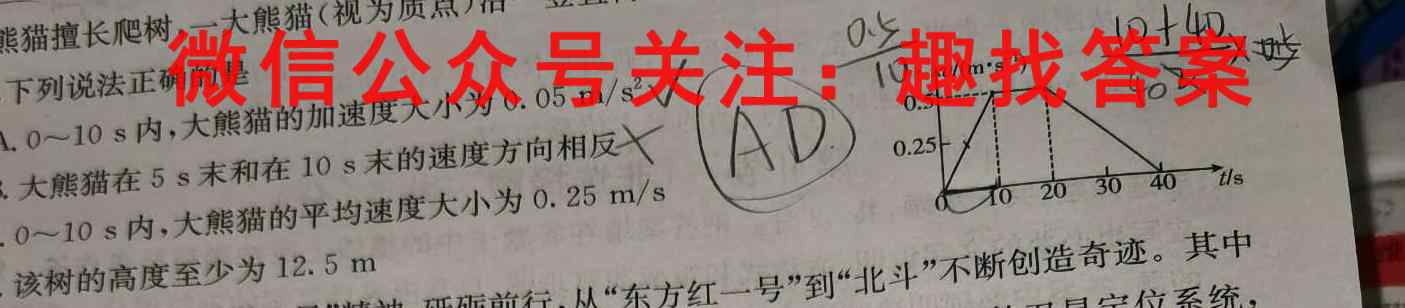 熊猫擅长爬树,一大熊猫(视为质点)沿
下列说法正确的是
微信公众号关注:趣找答案
A. 0～10 s 内,大熊猫的加速度大小为 0.05 m/s²√
B. 大熊猫在 5 s 末和在 10 s 末的速度方向相反×
. 0～10 s 内,大熊猫的平均速度大小为 0.25 m/s
. 该树的高度至少为 12.5 m
AD.
0.5
10
10+40
0.5
0.25
0 10 20 30 40 t/s
精神,砥砺前行,从“东方红一号”到“北斗”不断创造奇迹。其中
定位系统,